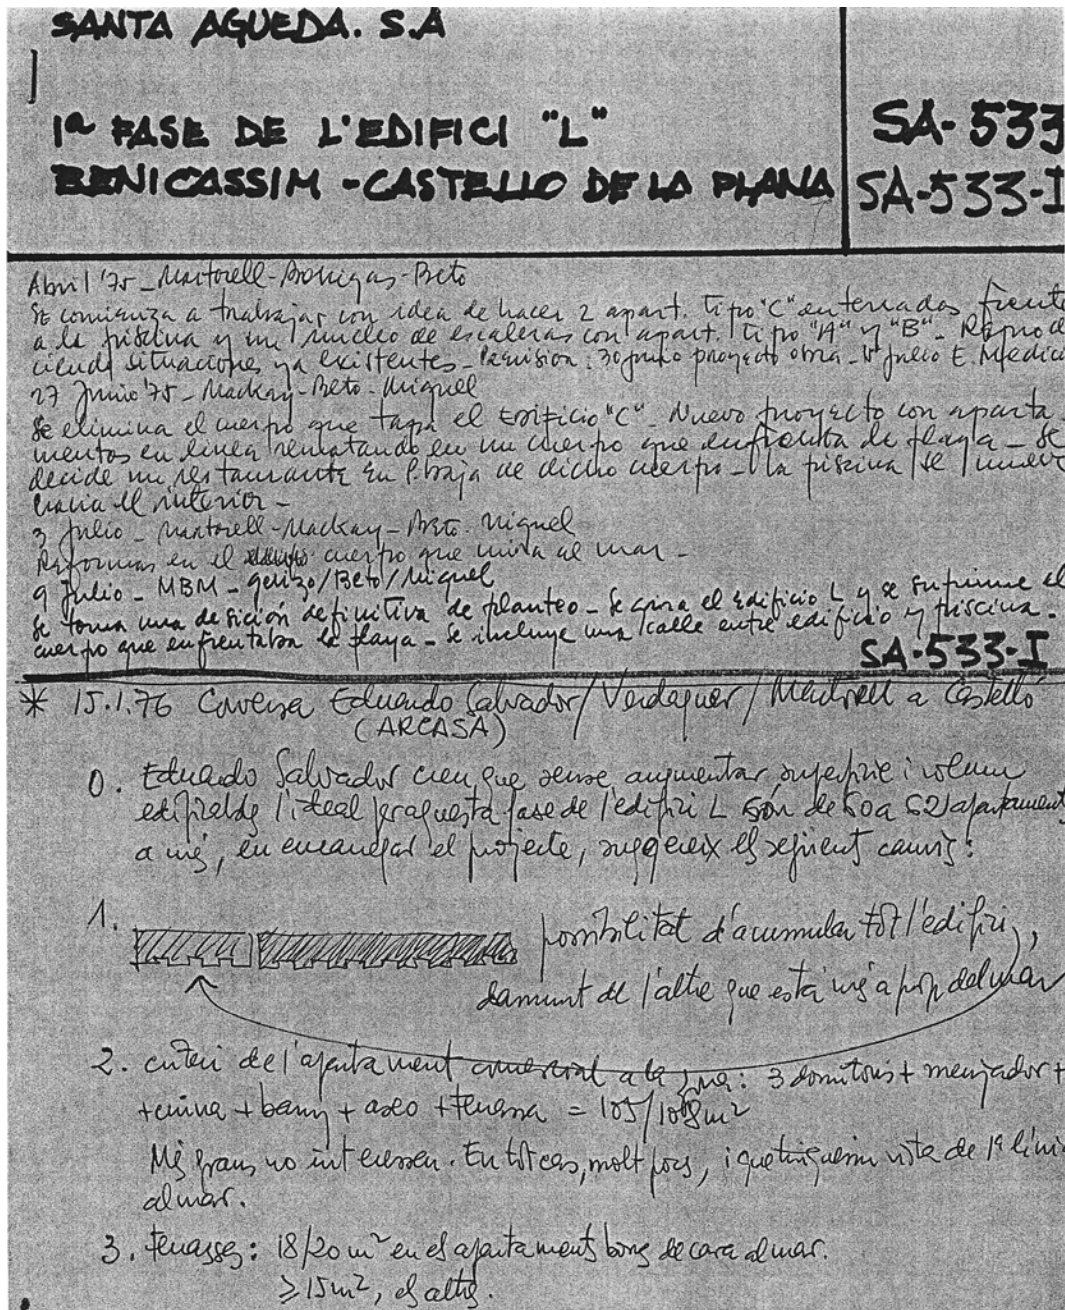 SANTA AGUEDA. S.A
1ª FASE DE L'EDIFICI "L"
BENICASSIM - CASTELLO DE LA PLANA
SA-533
SA-533-I
Abril '75 - Martorell-Bohigas-Beto
Se comienza a trabajar con idea de hacer 2 apart. tipo "C" enterrados frente
a la piscina y un nucleo de escaleras con apart. tipo "A" y "B" - Repro d
ciendo situaciones ya existentes - Revisión: 30 junio proyecto obra - julio E. Medici
27 Junio '75 - Mackay-Beto-Miguel
Se elimina el cuerpo que tapa el Edificio "C" - Nuevo proyecto con aparta
mentos en linea rematando en un cuerpo que enfrenta de playa - Se
decide un restaurante en P. baja de dicho cuerpo - la piscina se mueve
hacia el interior -
3 julio - Martorell-Mackay-Beto-Miguel
Reformas en el cuerpo que mira al mar -
9 Julio - MBM - /Beto/Miguel
Se toma una desición definitiva de planteo - Se gira el edificio L y se suprime el
cuerpo que enfrentaba la playa - Se incluye una calle entre edificio y piscina -
SA-533-I
* 15.1.76 Conversa Eduardo Salvador/Verdaguer/Martorell a Castelló
(ARCASA)
0. Eduardo Salvador creu que sense augmentar superfície i volum
edificable l'ideal per aquesta fase de l'edifici L són de 50 a 52 apartaments
a més, en encarregar el projecte, suggereix els següent canvis:
1. possibilitat d'acumular tot l'edifici,
damunt de l'altre que está més a prop del mar
2. criteri de l'apartament comercial a la zona: 3 dormitoris + menjador +
+ cuina + bany + aseo + terrassa = 105/108 m²
Més grans no interessen. En tot cas, molt pocs, i que tinguessin vista de 1ª líni
al mar.
3. terrasses: 18/20 m² en els apartaments bons de cara al mar.
≥ 15 m², els altres.